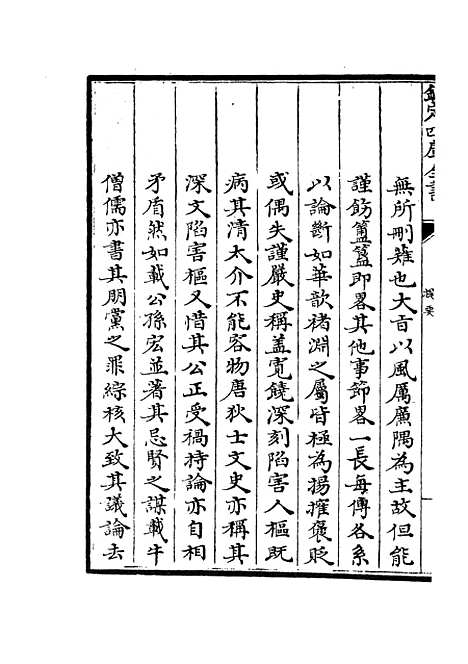 欽定四庫全書
提要
無所刪薙也大旨以風厲廉隅為主故但能
謹飭簠簋即畧其他事節畧一長每傳各系
以論斷如華歆禇淵之屬皆極為揚搉褒貶
或偶失謹嚴史稱盖寛饒深刻陷害人樞既
病其清太介不能容物唐狄士文史亦稱其
深文陷害樞又惜其公正受禍持論亦自相
矛盾然如載公孫宏並著其忌賢之謀載牛
僧儒亦書其朋黨之罪綜核大致其議論去